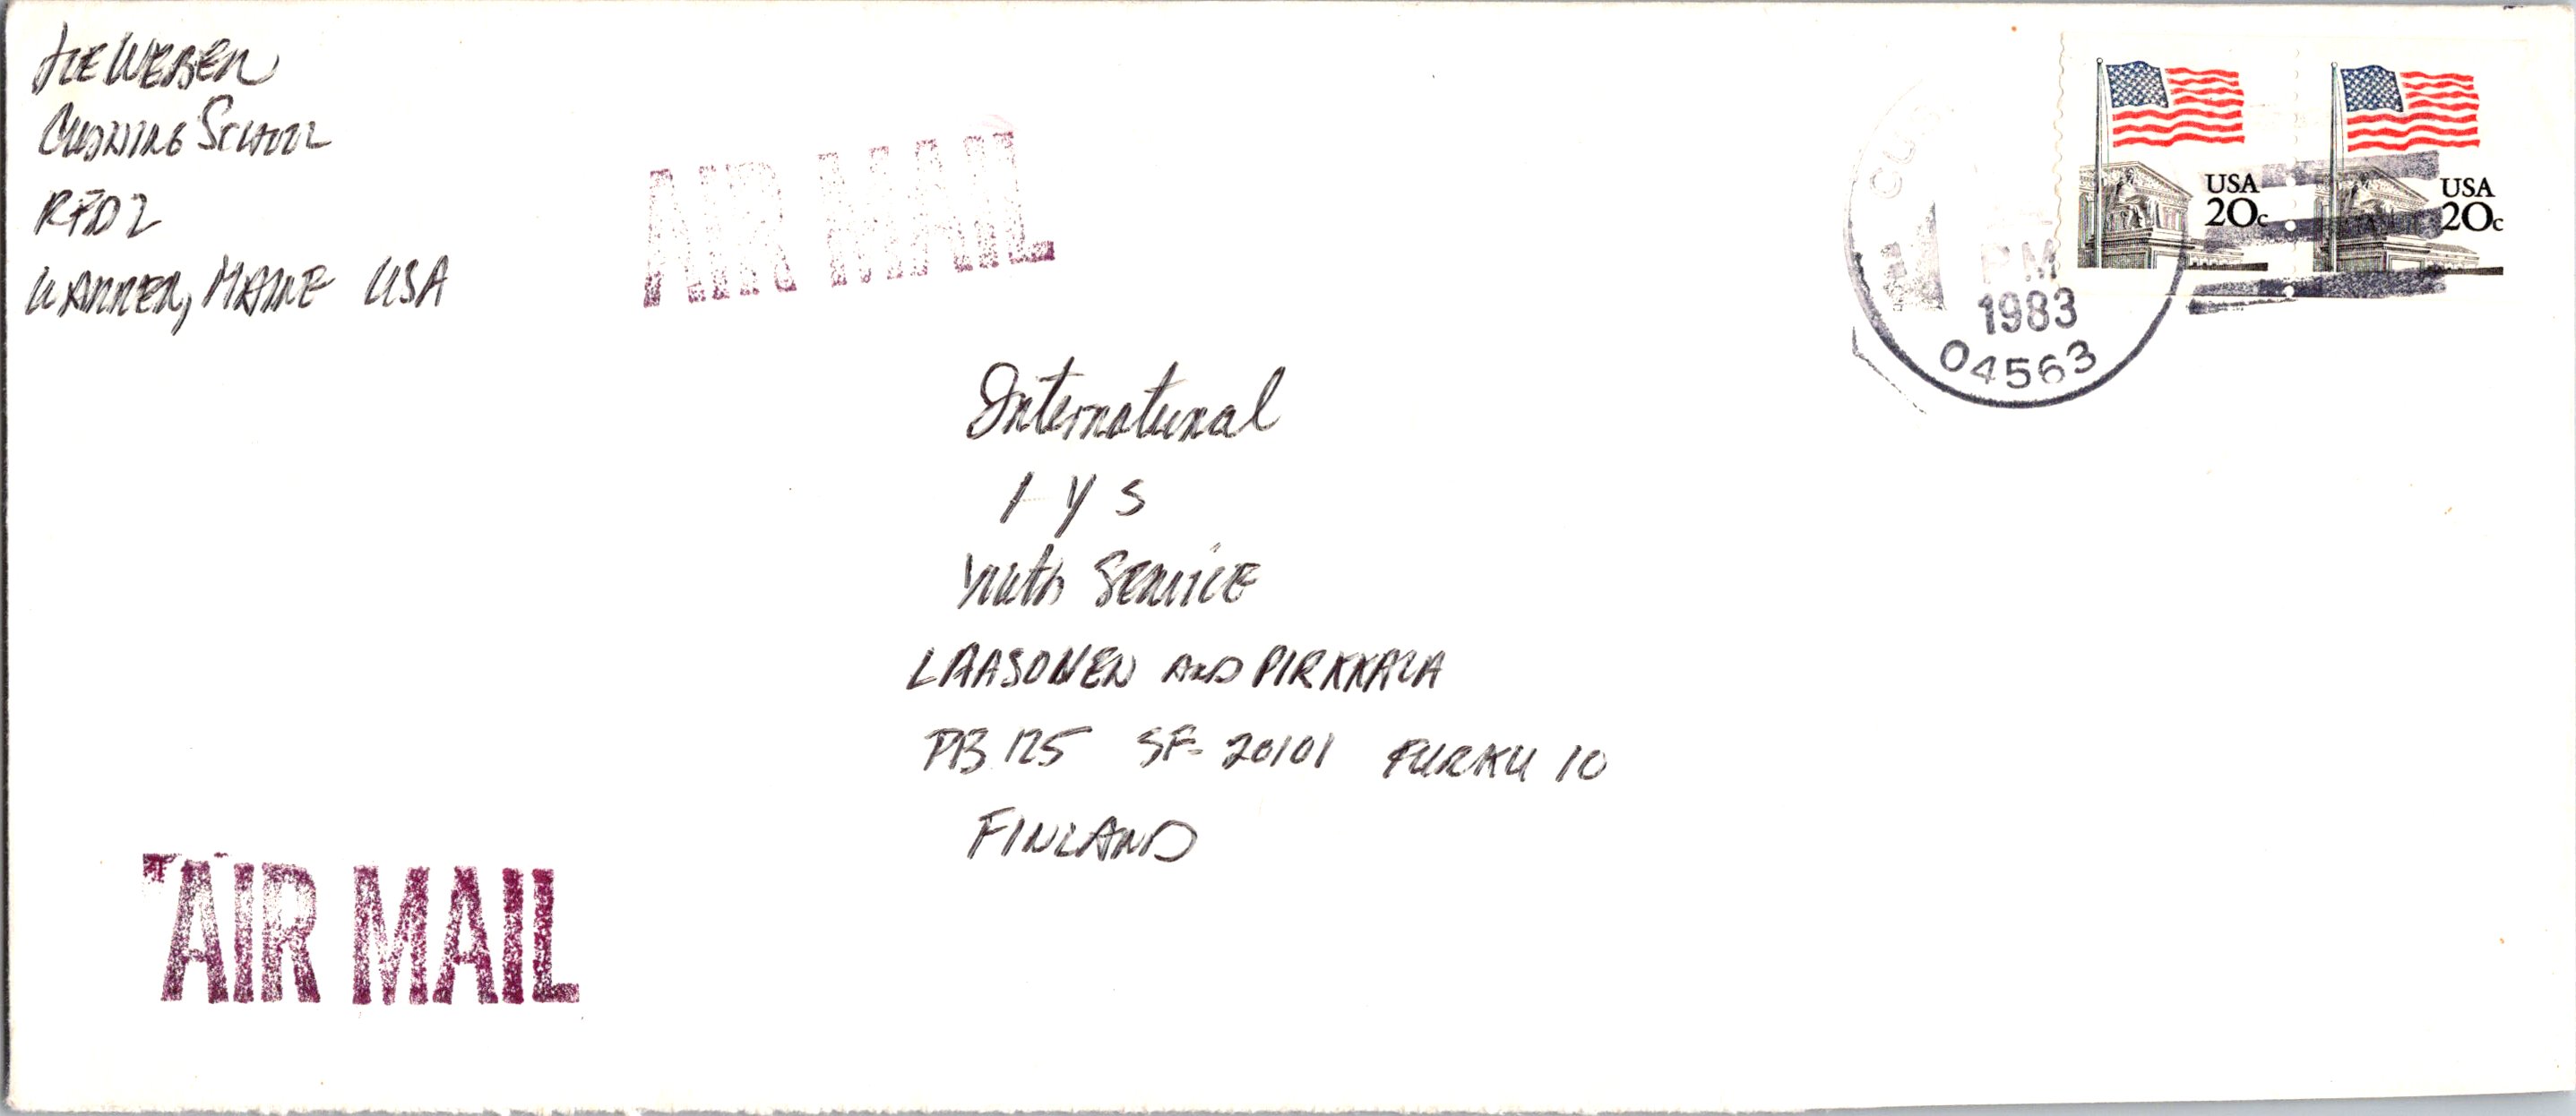 Joe Weber
Cushing School
RFD 2
Warren, Maine USA
AIR MAIL
PM
1983
04563
USA
20c
USA
20c
International
I Y S
Youth Service
LAASONEN AND PIRKKALA
PB 125 SF-20101 FURKU 10
FINLAND
AIR MAIL